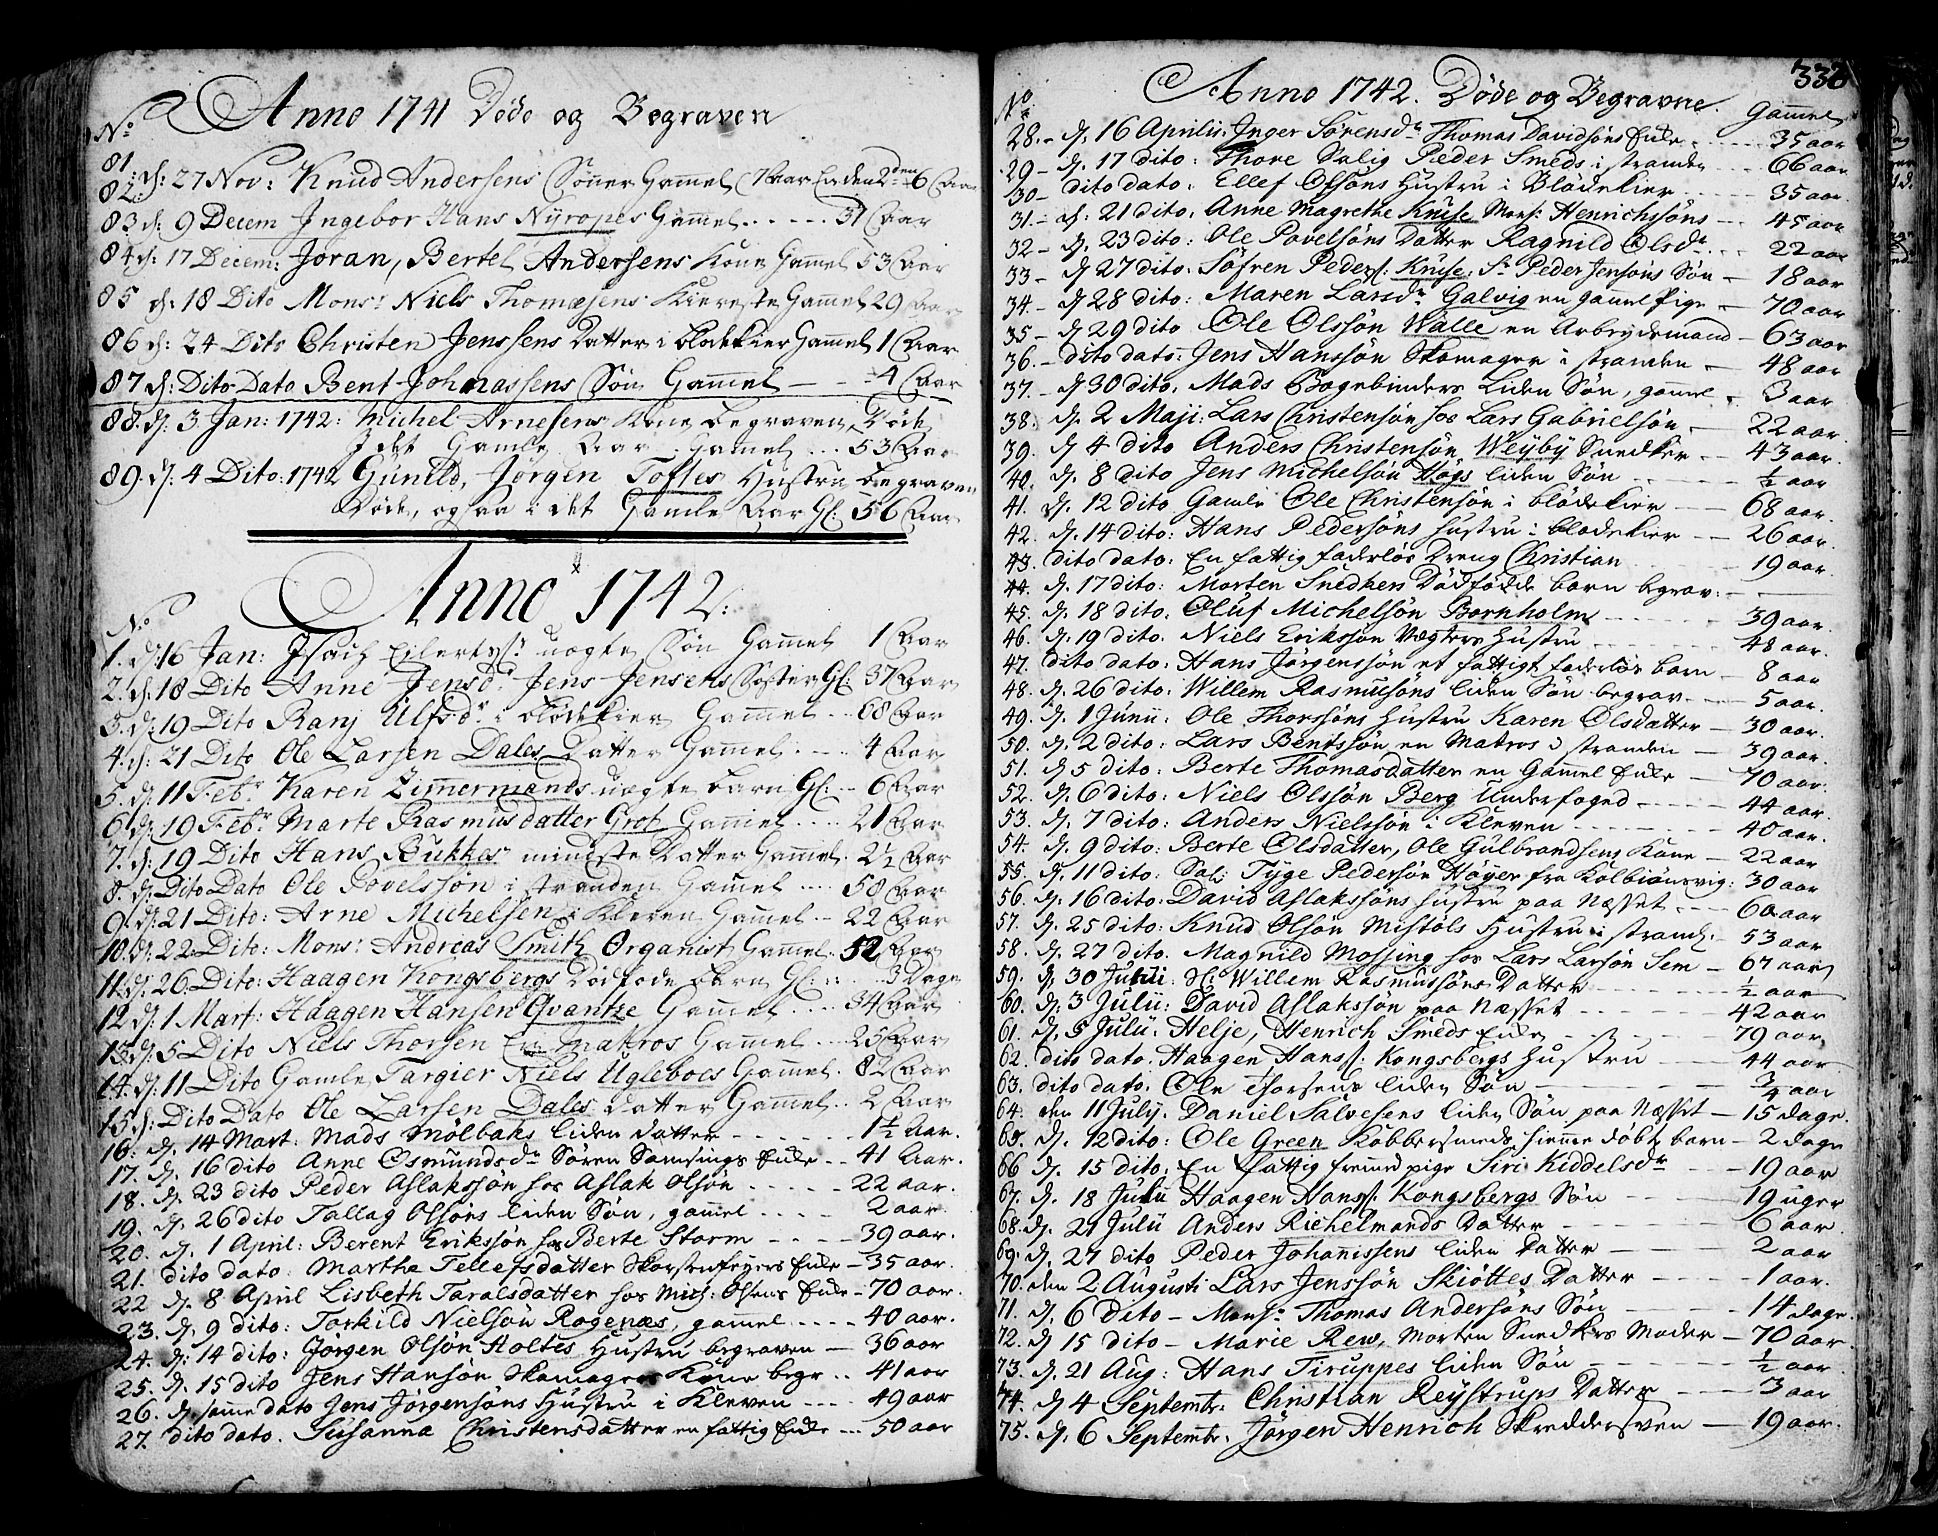 Anno 1741 Døde og Begraven
No
81.
82. d: 27 Nov: Knud Andersens Sønner Gamel 7 Aar Er den 2den 6 Aar
83 d: 9 Decem Ingebor Hans Nyropes Gamel ..... 31 Aar
84 d: 17 Decem: Joran, Bertel Andersens Kone Gamel 53 Aar
85 d: 18 Dito Mons: Niels Thomæsens Kiereste Gamel 29 Aar
86 d: 24 Dito Christen Jenssens Datter i blødekier Gamel 1 Aar
87 d: Dito Dato Bent Johnassens Søn Gamel — - - 4 Aar
88. d: 3 Jan: 1742: Michel Arnesens Kone begraven, Døde
I det Gamle Aar. Gamel ... 53 Aar
89. d: 4 Dito: 1742 Gunild, Jørgen Tofles Hustru begraven
Døde, ogsaa i det Gamle Aar Gl: 56 Aar
Anno 1742:
No
1. d: 16 Jan: Isach Eilertss: uægte Søn Gamel 1 Aar
2. d: 18 Dito Anne Jensdr Jens Jensens Søster Gl: 37 Aar
3. d: 19 Dito Ranj Ulfsdr i blødekier Gamel .. 68 Aar
4. d: 21 Dito Ole Larsen Dales Datter Gamel .... 4 Aar
5. d: 11 Febr Karen Zimermands uægte barn Gl: .. 6 Aar
6 d: 19 Febr Marte Rasmusdatter Grot Gamel .... 21 Aar
7. d: 19 Dito Hans Bukkes mindste Datter Gamel. 2½ Aar
8. d: Dito Dato Ole Povelssøn i stranden Gamel .... 58 Aar
9. d: 21 Dito: Arne Michelsen i Kleven Gamel .. 22 Aar
10. d: 22 Dito: Mons: Andreas Smith Organist Gamel. 52 Aar
11. d: 26 Dito: Haagen Kongsbergs Dødføde barn Gl: ... 3 Dage
12 d: 1 Mart: Haagen Hansen Qvantze Gamel .... 34 Aar
13 d: 5 Dito Niels Thorsen En Matros Gamel ... 25 Aar
14. d: 11 Dito Gamle Targier Niels Ugleboes Gamel. 82 Aar
15 d: Dito Dato Ole Larsen Dales Datter Gamel .. 2 Aar
16. d. 14 Mart: Mads Mølbaks liden datter — 1½ Aar.
17. d. 16 dito Anne Osmundsdr Søren Samsings Enke .. 41 Aar.
18. d. 23 dito Peder Aslakssøn hos Aslak Olsøn — 22 aar.
19. d. 26 dito Tallag Olsøns liden Søn, gamel — 2 aar
20. d. 1 April: Berent Erikssøn hos Berte Storm — 39 aar.
21. dito dato: Martha Tellefsdatter Skorstenfeyers Enke — 35 aar.
22 d. 8 April Lisbeth Taralsdatter hos Mich: Olsens Enke — 70 aar.
23. d. 9 dito: Torkild Nielsøn Rogenæs, gamel .... 40 aar.
24. d: 14 dito: Jørgen Olsøn Holtes Hustru begraven — 36 aar
25. d. 15 dito Jens Hansøn Skomagers Kone begr .. 41 aar
26. d. samme dato Jens Jørgensøns Hustru i Kleven ... 49 aar
27. dito dato. Susanna Christensdatter en fattig Enke ... 50 aar
336
Anno 1742. Døde og Begravne.
No Gamel
28. d. 16 Aprilii Inger Sørensdr Thomas Davidsøns Enke — 35 aar
29 - d. 17 dito: Thore Salig Peder Smeds i stranden — 66 aar
30 - dito dato: Ellef Olsøns Hustru i Blødekier — 35 aar
31. - d: 21 dito: Anne Magrethe Kruse Mons: Henrichssøns — 45 aar
32 - d. 23 dito: Ole Povelsøns Datter Ragnild Olsdr — 22 aar
33 - d 27 dito: Søfren Peders: Kruse: Sr Peder Jensøns Søn — 18 aar
34. - d 28 dito: Maren Larsdr Galvig en gamel Pige — 70 aar
35 - d 29 dito Ole Olssøn Walle en Arbeydsmand — 63 aar
36. - dito dato: Jens Hanssøn Skomager i stranden — 48 aar
37. - d 30 dito, Mads Bogebinders Liden Søn, gamel — 3 aar
38. d. 2 Maji: Lars Christensøn hos Lars Gabrielsøn — 22 aar.
39. d 4 dito Anders Christensøn Weyby Snedker — 43 aar.
40. d. 8 dito Jens Michelsøn Høgs liden Søn — ½ aar
41. d. 12 dito Gamle Ole Christensøn i blødekier — 68 aar.
42. d. 14 dito: Hans Pedersøns hustru i blødekier — 26 aar.
43. dito dato: En fattig faderløs Dreng Christian — 19 aar.
44. d. 17 dito: Morten Snedkers Dødfødde barn begrav: —
45. d. 18 dito. Oluf Michelsøn Bornholm — 39 aar.
46. d. 19 dito. Niels Erikssøn Vægters Hustru — 48 aar.
47. dito dato: Hans Jørgenssøn et fattigt faderløs barn — 8 aar
48. d. 26 dito: Willem Rasmusøns liden Søn begrav — 5 aar.
49. d. 1 Junii: Ole Thorssøns Hustru Karen Olsdatter — 30 aar.
50. d. 2 dito: Lars Bentssøn en Matros i stranden — 39 aar.
51. d 5 dito: Berte Thomasdatter en Gamel Enke — 70 aar.
52. d. 6 dito: Niels Olssøn Berg Underfoged — 44 aar.
53. d. 7 dito: Anders Nielssøn i Kleven — 40 aar.
54. d. 9 dito: Berte Olsdatter, Ole Gulbrandsens Kone — 22 aar
55. d. 11 dito: Sal: Tyge Pedersøn Høyer fra Kolbiønsvig: 30 aar
56. d. 16 dito: David Aslakssøns hustru paa Næsset — 60 aar
57. d. 25 dito: Knud Olsøn Mistøls Hustru i strand. — 53 aar
58. d. 27 dito. Magnild Mossing hos Lars Larsøn Sem — 67 aar
59. d. 30 Junii: Sl: Willem Rasmussøns Datter — ½ aar
60. d: 3 Julii: David Aslakssøn paa Næsset — 42 aar
61. d. 5 Julii. Helje, Henrich Smeds Enke — 79 aar
62. dito dato: Haagen Hanss: Kongsbergs Hustru — 44 aar
63. dito dato. Ole Thorsens liden Søn — ¾ aar
64. den 11 July. Daniel Salvesens liden Søn paa Næsset — 15 dage.
65. d. 12 dito: Ole Green Kobbersmeds hiemme døbt barn — 2 dage
66 d. 15 dito: En fattig fremmed pige Siri Kiddelsdr — 19 aar
67. d. 18 Julii Haagen Hanss: Kongsbergs Søn — 19 uger
68. d. 21 Julii Anders Richelmands Datter — 6 aar
69. d. 27 dito Peder Johanissens liden Datter — 2 aar
70. den 2 Augusti Lars Jenssøn Skiøttes Datter — 1 aar.
71. d. 6 Dito — Monsr Thomas Andersøns Søn — 14 dage.
72. d 15 dito — Marie Rew, Morten Snedkers Moder — 70 aar
73. d. 21 Aug: Hans Tiruppes liden Søn — ½ aar
74. d 4 Septembr. Christian Reystrups Datter — 3 aar
75. d. 6 Septembr. Jørgen Henrich Skreddersven — 19 aar.